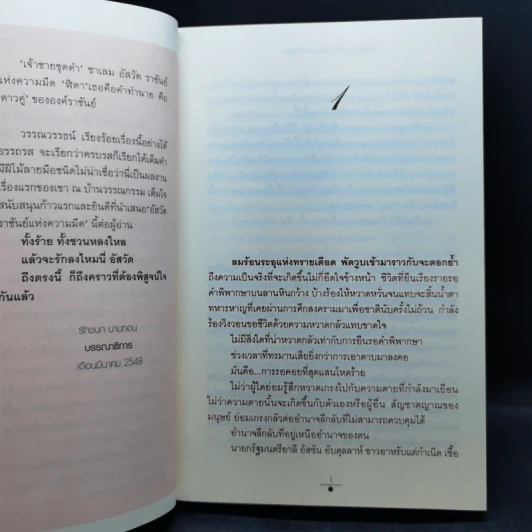 'เจ้าชายชุดดำ' ซาเลม อัสวัด ราชันย์
แห่งความมืด 'ฟิดา' เธอคือคำทำนาย คือ
ดาวคู่' ขององค์ราชันย์
วรรณวรรธน์ เรียงร้อยเรื่องนี้อย่างได้
อรรถรส จะเรียกว่าครบรสก็เรียกได้เต็มคำ
มีฝีไม้ลายมือชนิดไม่น่าเชื่อว่านี่เป็นผลงาน
เรื่องแรกของเขา ณ บ้านวรรณกรรม เต็มใจ
สนับสนุนก้าวแรกและยินดีที่นำเสนอ 'อัสวัด
ราชันย์แห่งความมืด' นี้ต่อผู้อ่าน
ทั้งร้าย ทั้งชวนหลงใหล
แล้วจะรักลงไหมนี่ อัสวัด
ถึงตรงนี้ ก็ถึงคราวที่ต้องพิสูจน์ใจ
กันแล้ว
รักชนก นามทอน
บรรณาธิการ
เดือนมีนาคม 2548
1
ลมร้อนระอุแห่งทรายเดือด พัดวูบเข้ามาราวกับจะตอกย้ำ
ถึงความเป็นจริงที่จะเกิดขึ้นในไม่กี่อึดใจข้างหน้า ชีวิตที่ยืนเรียงรายรอ
คำพิพากษาบนลานหินกว้าง บ้างร้องไห้หวาดหวั่นจนแทบจะสิ้นน้ำตา
ทหารหาญที่เคยผ่านการศึกสงครามมาเพื่อชาตินับครั้งไม่ถ้วน กำลัง
ร้องวิงวอนขอชีวิตด้วยความหวาดกลัวแทบขาดใจ
ไม่มีสิ่งใดที่น่าหวาดกลัวเท่ากับการยืนรอคำพิพากษา
ช่วงเวลาที่ทรมานเสียยิ่งกว่าการเอาดาบมาลงคอ
มันคือ...การรอคอยที่สุดแสนโหดร้าย
ไม่ว่าผู้ใดย่อมรู้สึกหวาดเกรงไปกับความตายที่กำลังมาเยือน
ไม่ว่าความตายนั้นจะเกิดขึ้นกับตัวเองหรือผู้อื่น สัญชาตญาณของ
มนุษย์ ย่อมเกรงกลัวต่ออำนาจลึกลับที่ไม่สามารถควบคุมได้
อำนาจลึกลับที่อยู่เหนืออำนาจของตน
นายกรัฐมนตรีอาลี อัสซัน อับดุลลาห์ ชาวอาหรับแต่กำเนิด เชื้อ
1